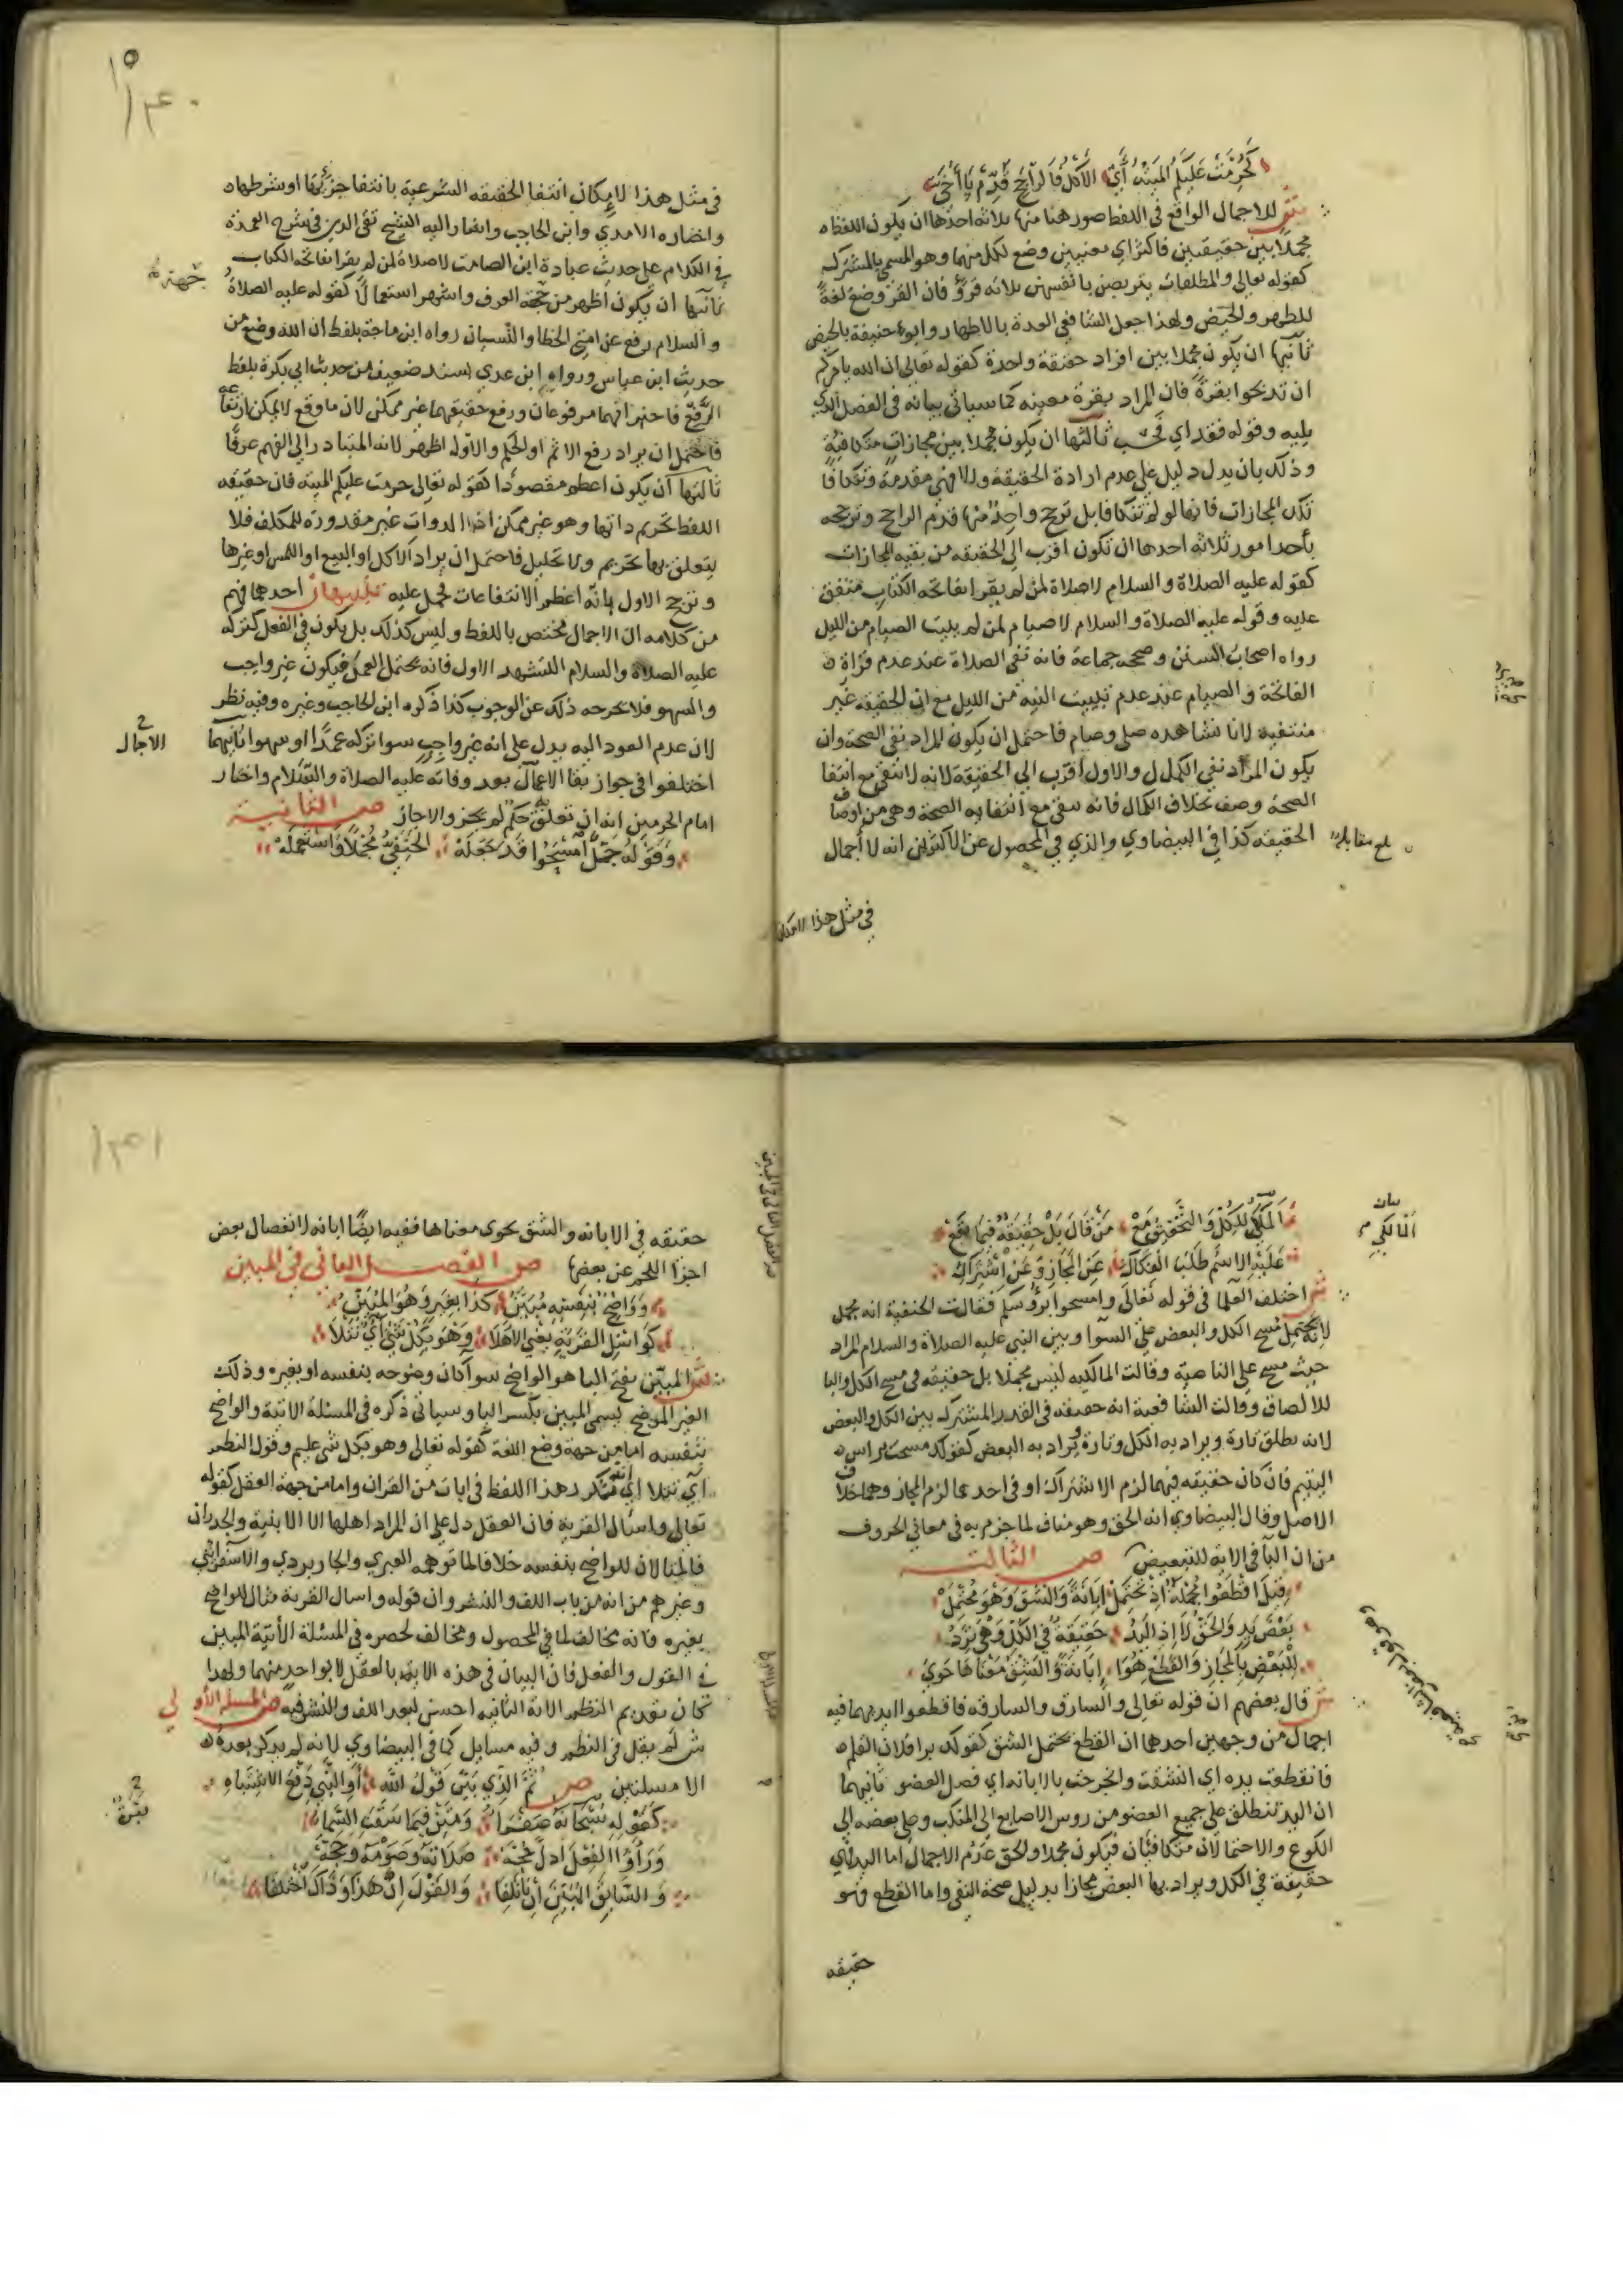 كَحُرِّمَتْ عَلَيْكُمُ الْمَيْتَةُ أَيْ الْأَكْلُ فَالرَّاجِحُ قَدِّمْ يَا أُخَيّ
ش للاجمال الواقع في اللفظ صور هنا منها ثلاثة احدها ان يكون اللفظ
مجملا بين حقيقتين فاكثر اي معنيين وضع لكل منهما وهو المسمى بالمشترك
كقوله تعالى والمطلقات يتربصن بانفسهن ثلاثة قروء فان القرء وضع لغة
للطهر والحيض ولهذا جعل الشافعي العدة بالاطهار وابو حنيفة بالحيض
ثانيها ان يكون مجملا بين افراد حقيقة واحدة كقوله تعالى ان الله يامركم
ان تذبحوا بقرة فان المراد بقرة معينة كما سياتي بيانه في الفصل الذي
يليه وقوله فقد اي فحسب ثالثها ان يكون مجملا بين مجازات متكافية
وذلك بان يدل دليل على عدم ارادة الحقيقة والا فهي مقدمة وتتكافا
تلك المجازات فانها لو لم تتكافا بل ترجح واحد منها قدم الراجح وترجحه
بأحد امور ثلاثة احدها ان تكون اقرب الى الحقيقة من بقية المجازات
كقوله عليه الصلاة والسلام لا صلاة لمن لم يقرا بفاتحة الكتاب متفق
عليه وقوله عليه الصلاة والسلام لا صيام لمن لم يبيت الصيام من الليل
رواه اصحاب السنن وصححه جماعة فانه نفى الصلاة عند عدم قراة
الفاتحة والصيام عند عدم تبييت النية من الليل مع ان الحقيقة غير
منتفية لانا نشاهده صلى وصام فاحتمل ان يكون المراد نفي الصحة وان
يكون المراد نفي الكمال والاول اقرب الى الحقيقة لانه لا نتفي مع انتفا
الصحة وصف بخلاف الكمال فانه يبقى مع انتفايه الصحة وهي من اوصاف
الحقيقة كذا في البيضاوي والذي في المحصول عن الاكثرين انه لا أجمال
بلغ مقابلة
في مثل هذا لامكان
١٤٠
في مثل هذا لامكان انتفا الحقيقة الشرعية بانتفا جزئها او شرطها
واختاره الامدي وابن الحاجب واشار اليه الشيخ تقي الدين في شرح العمدة
في الكلام على حديث عبادة ابن الصامت لا صلاة لمن لم يقرا بفاتحة الكتاب
ثانيها ان يكون أظهر من جهة العرف واشهر استعمالا كقوله عليه الصلاة
جهة
والسلام رفع عن امتي الخطا والنسيان رواه ابن ماجة بلفظ ان الله وضع من
حديث ابن عباس ورواه ابن عدي بسند ضعيف من حديث ابي بكرة بلفظ
الرفع فاخبر انهما مرفوعان ورفع حقيقتهما غير ممكن لان ما وقع لا يمكن ارتفاعه
فاحتمل ان يراد رفع الاثم او الحكم والاول اظهر لانه المتبادر الى الفهم عرفا
ثالثها أن يكون اعظم مقصودا كقوله تعالى حرمت عليكم الميتة فان حقيقة
اللفظ تحريم ذاتها وهو غير ممكن اذ الذوات غير مقدورة للمكلف فلا
يتعلق بها تحريم ولا تحليل فاحتمل ان يراد الاكل او البيع او اللمس او غيرها
وترجح الاول بانه اعظم الانتفاعات فحمل عليه تنبيهان احدهما فهم
من كلامه ان الاجمال مختص باللفظ وليس كذلك بل يكون في الفعل كتركه
عليه الصلاة والسلام التشهد الاول فانه يحتمل العمد فيكون غير واجب
والسهو فلا يخرجه ذلك عن الوجوب كذا ذكره ابن الحاجب وغيره وفيه نظر
لان عدم العود اليه يدل على انه غير واجب سوا تركه عمدا او سهوا ثانيهما
الاجمال
اختلفوا في جواز بقا الاجمال بعد وفاته عليه الصلاة والسلام واختار
امام الحرمين انه ان تعلق به حكم لم يجز والا جاز ص الثانية
وَقَوْلُهُ جَلَّ امْسَحُوا قَدْ جَعَلَهْ الْحَنَفِيُّ مُجْمَلًا وَاسْتَعْمَلَهْ
المَالِكِيْ لِلْكُلِّ وَالتَّحْقِيقُ مَعْ مَنْ قَالَ بَلْ حَقِيقَةٌ فِيمَا يَقَعْ
بيان
المالكي
عَلَيْهِ الاسْمُ طَلَبُ انْفِكَاكِ عَنِ الْمَجَازِ وَعَنِ اشْتِرَاكِ
ش اختلف العلما في قوله تعالى وامسحوا برؤسكم فقالت الحنفية انه مجمل
لانه يحتمل مسح الكل والبعض على السوا وبين النبي عليه الصلاة والسلام المراد
حيث مسح على الناصية وقالت المالكية ليس مجملا بل حقيقة في مسح الكل والبا
للالصاق وقالت الشافعية انه حقيقة في القدر المشترك بين الكل والبعض
لانه يطلق تارة ويراد به الكل وتارة ويراد به البعض كقولك مسحت براس
اليتيم فان كان حقيقة فيهما لزم الاشتراك او في احدهما لزم المجاز وهما خلاف
الاصل وقال البيضاوي انه الحق وهو مناف لما جزم به في معاني الحروف
من ان البا في الاية للتبعيض ص الثالث
قِيلَ اقْطَعُوا مُجْمَلَةٌ اذْ تَحْتَمِلْ ابَانَةً وَالشَّقَّ وَهْوَ مُحْتَمِلْ
بَعْضَ يَدٍ وَالْحَقُّ لَا اذِ الْيَدُ حَقِيقَةٌ فِي الْكُلِّ وَهْيَ تَرِدُ
لِلْبَعْضِ بِالْمَجَازِ وَالْقَطْعُ هُوَا إِبَانَةٌ وَالشَّقُّ مَعْنَاهَا حَوَى
ش قال بعضهم ان قوله تعالى والسارق والسارقة فاقطعوا ايديهما فيه
اجمال من وجهين احدهما ان القطع يحتمل الشق كقولك برا فلان القلم
فانقطعت يده اي انشقت وانجرحت والابانة اي فصل العضو ثانيهما
ان اليد تنطلق على جميع العضو من روس الاصابع الى المنكب وعلى بعضه الى
الكوع والاحتمالان متكافئان فيكون مجملا والحق عدم الاجمال اما اليد فهي
حقيقة في الكل ويراد بها البعض مجازا بدليل صحة النفي واما القطع فهو
حقيقة
١٤١
حقيقة في الابانة والشق يحوي معناها ففيه ايضا ابانة لانفصال بعض
اجزا اللحم عن بعضها ص الفصل الثاني في المبين
وَوَاضِحٌ بِنَفْسِهِ مُبَيَّنُ كَذَا بِغَيْرِهِ وَهُوَ الْمُبَيِّنُ
كَوَاسْئَلِ الْقَرْيَةَ يَعْنِي الاهْلَا وَهْوَ بِكُلِّ شَيْءٍ آيٌ تُتْلَا
ش المبين بفتح اليا هو الواضح سوا كان وضوحه بنفسه او بغيره وذلك
الغير الموضح يسمى المبين بكسر اليا وسياتي ذكره في المسئلة الاتية والواضح
بنفسه اما من جهة وضع اللغة كقوله تعالى وهو بكل شي عليم وقول الناظم
آي تتلا اي تكرر هذا اللفظ في ايات من القران واما من جهة العقل كقوله
تعالى واسأل القرية فان العقل دل على ان المراد اهلها لا الابنية والجدران
فالمثالان للواضح بنفسه خلافا لما توهمه العبري والجاربردي والاسفرايني
وغيرهم من انه من باب اللف والنشر وان قوله واسال القرية مثال للواضح
بغيره فانه مخالف لما في المحصول ومخالف لحصره في المسئلة الاتية المبين
في القول والفعل فان البيان في هذه الاية بالعقل لا بواحد منهما ولهذا
كان تقديم الناظم الاية الثانية احسن لبعد اللف والنشر فيه ص المسئلة الاولى
ش لم يقل في النظم وفيه مسايل كما في البيضاوي لانه لم يذكر بعده
الا مسئلتين ص ثُمَّ الَّذِي بَيَّنَ قَوْلُ اللَّهِ أَوِ النَّبِيْ ذِي الاشْتِبَاهِ
كَقَوْلِهِ سُبْحَانَهُ صَفْرَاءُ وَمَيْزٌ فِيمَا سَقَتِ السَّمَاءُ
وَرَأَوُا الْفِعْلَ ادَلَّ حُجَّهْ صَلَاتَهُ وَصَوْمَهُ وَحَجَّهْ
وَالسَّابِقُ الْمُبَيِّنُ إِنْ تَأَلَّفَا وَالْقَوْلُ إِنْ هَذَا وَذَاكَ اخْتَلَفَا